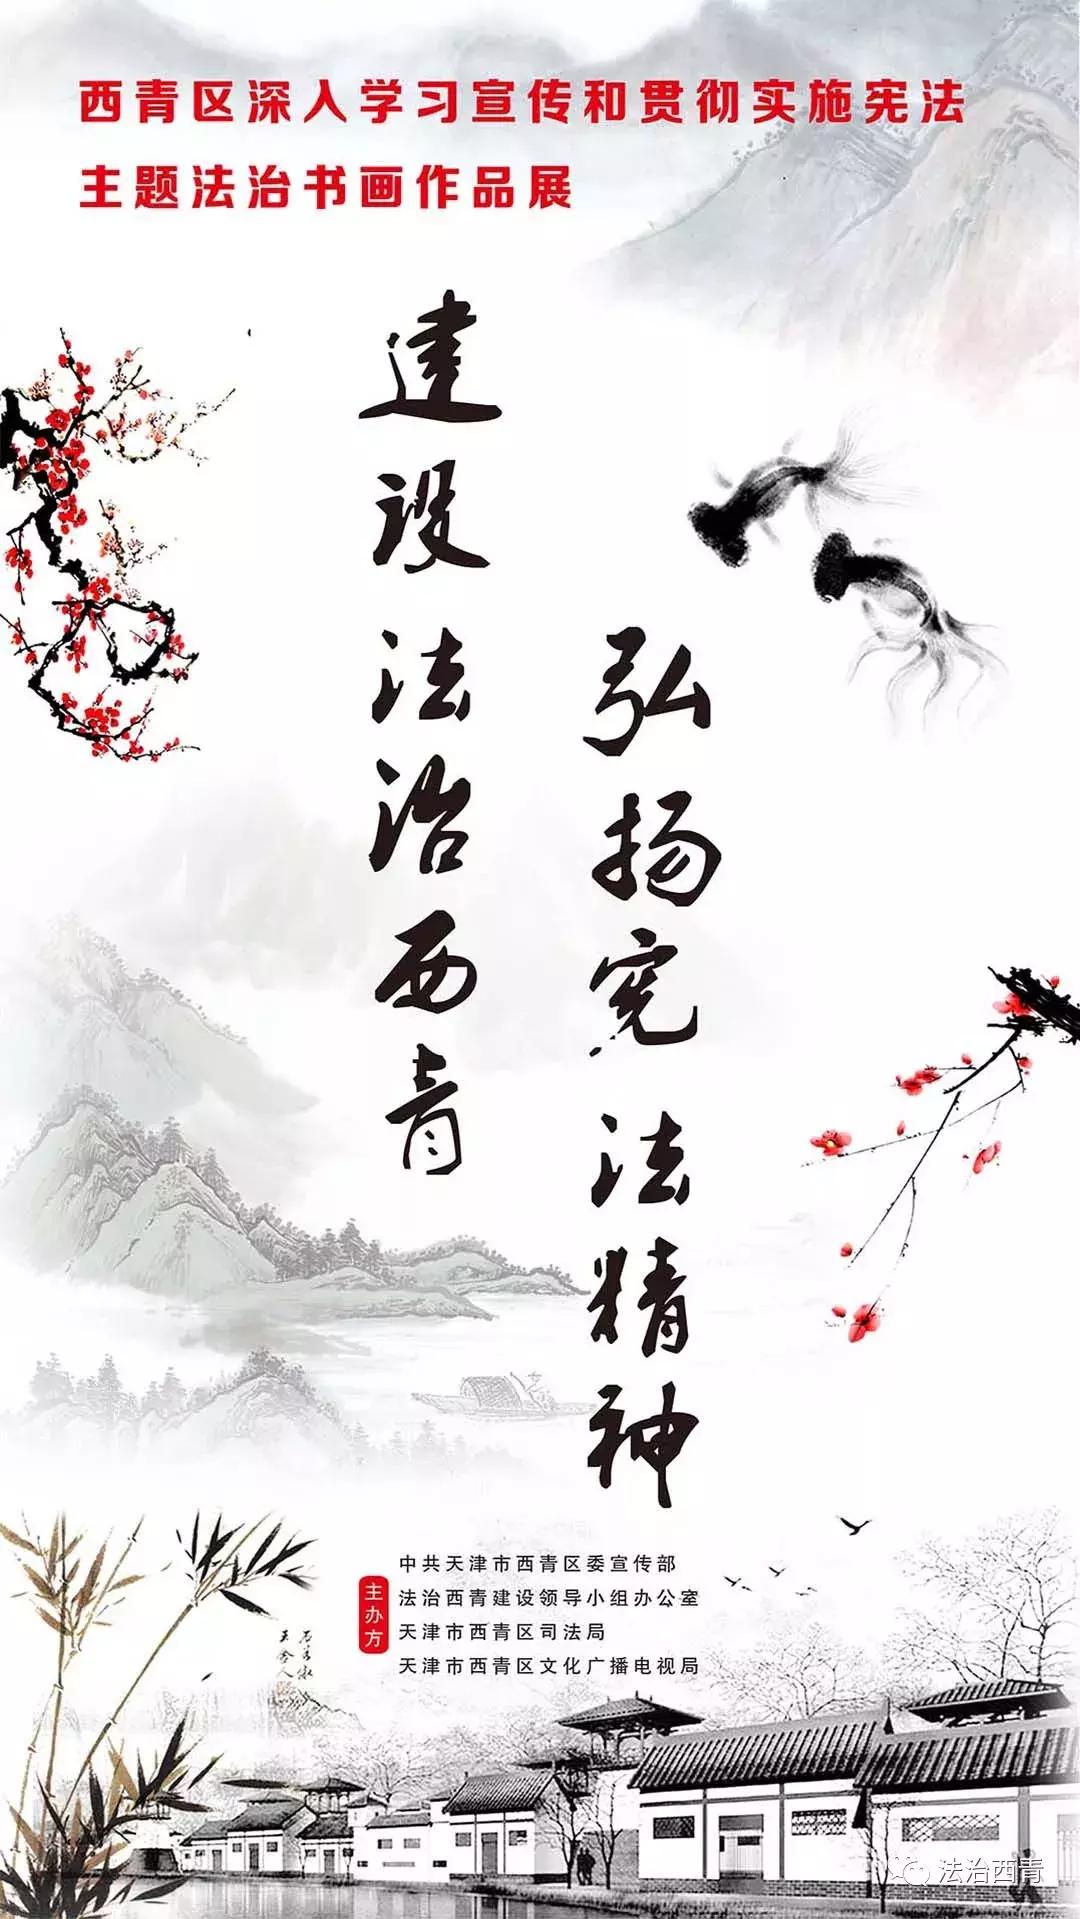 西青区深入学习宣传和贯彻实施宪法
主题法治书画作品展
弘扬宪法精神
建设法治西青
主办方
中共天津市西青区委宣传部
法治西青建设领导小组办公室
天津市西青区司法局
天津市西青区文化广播电视局
法治西青